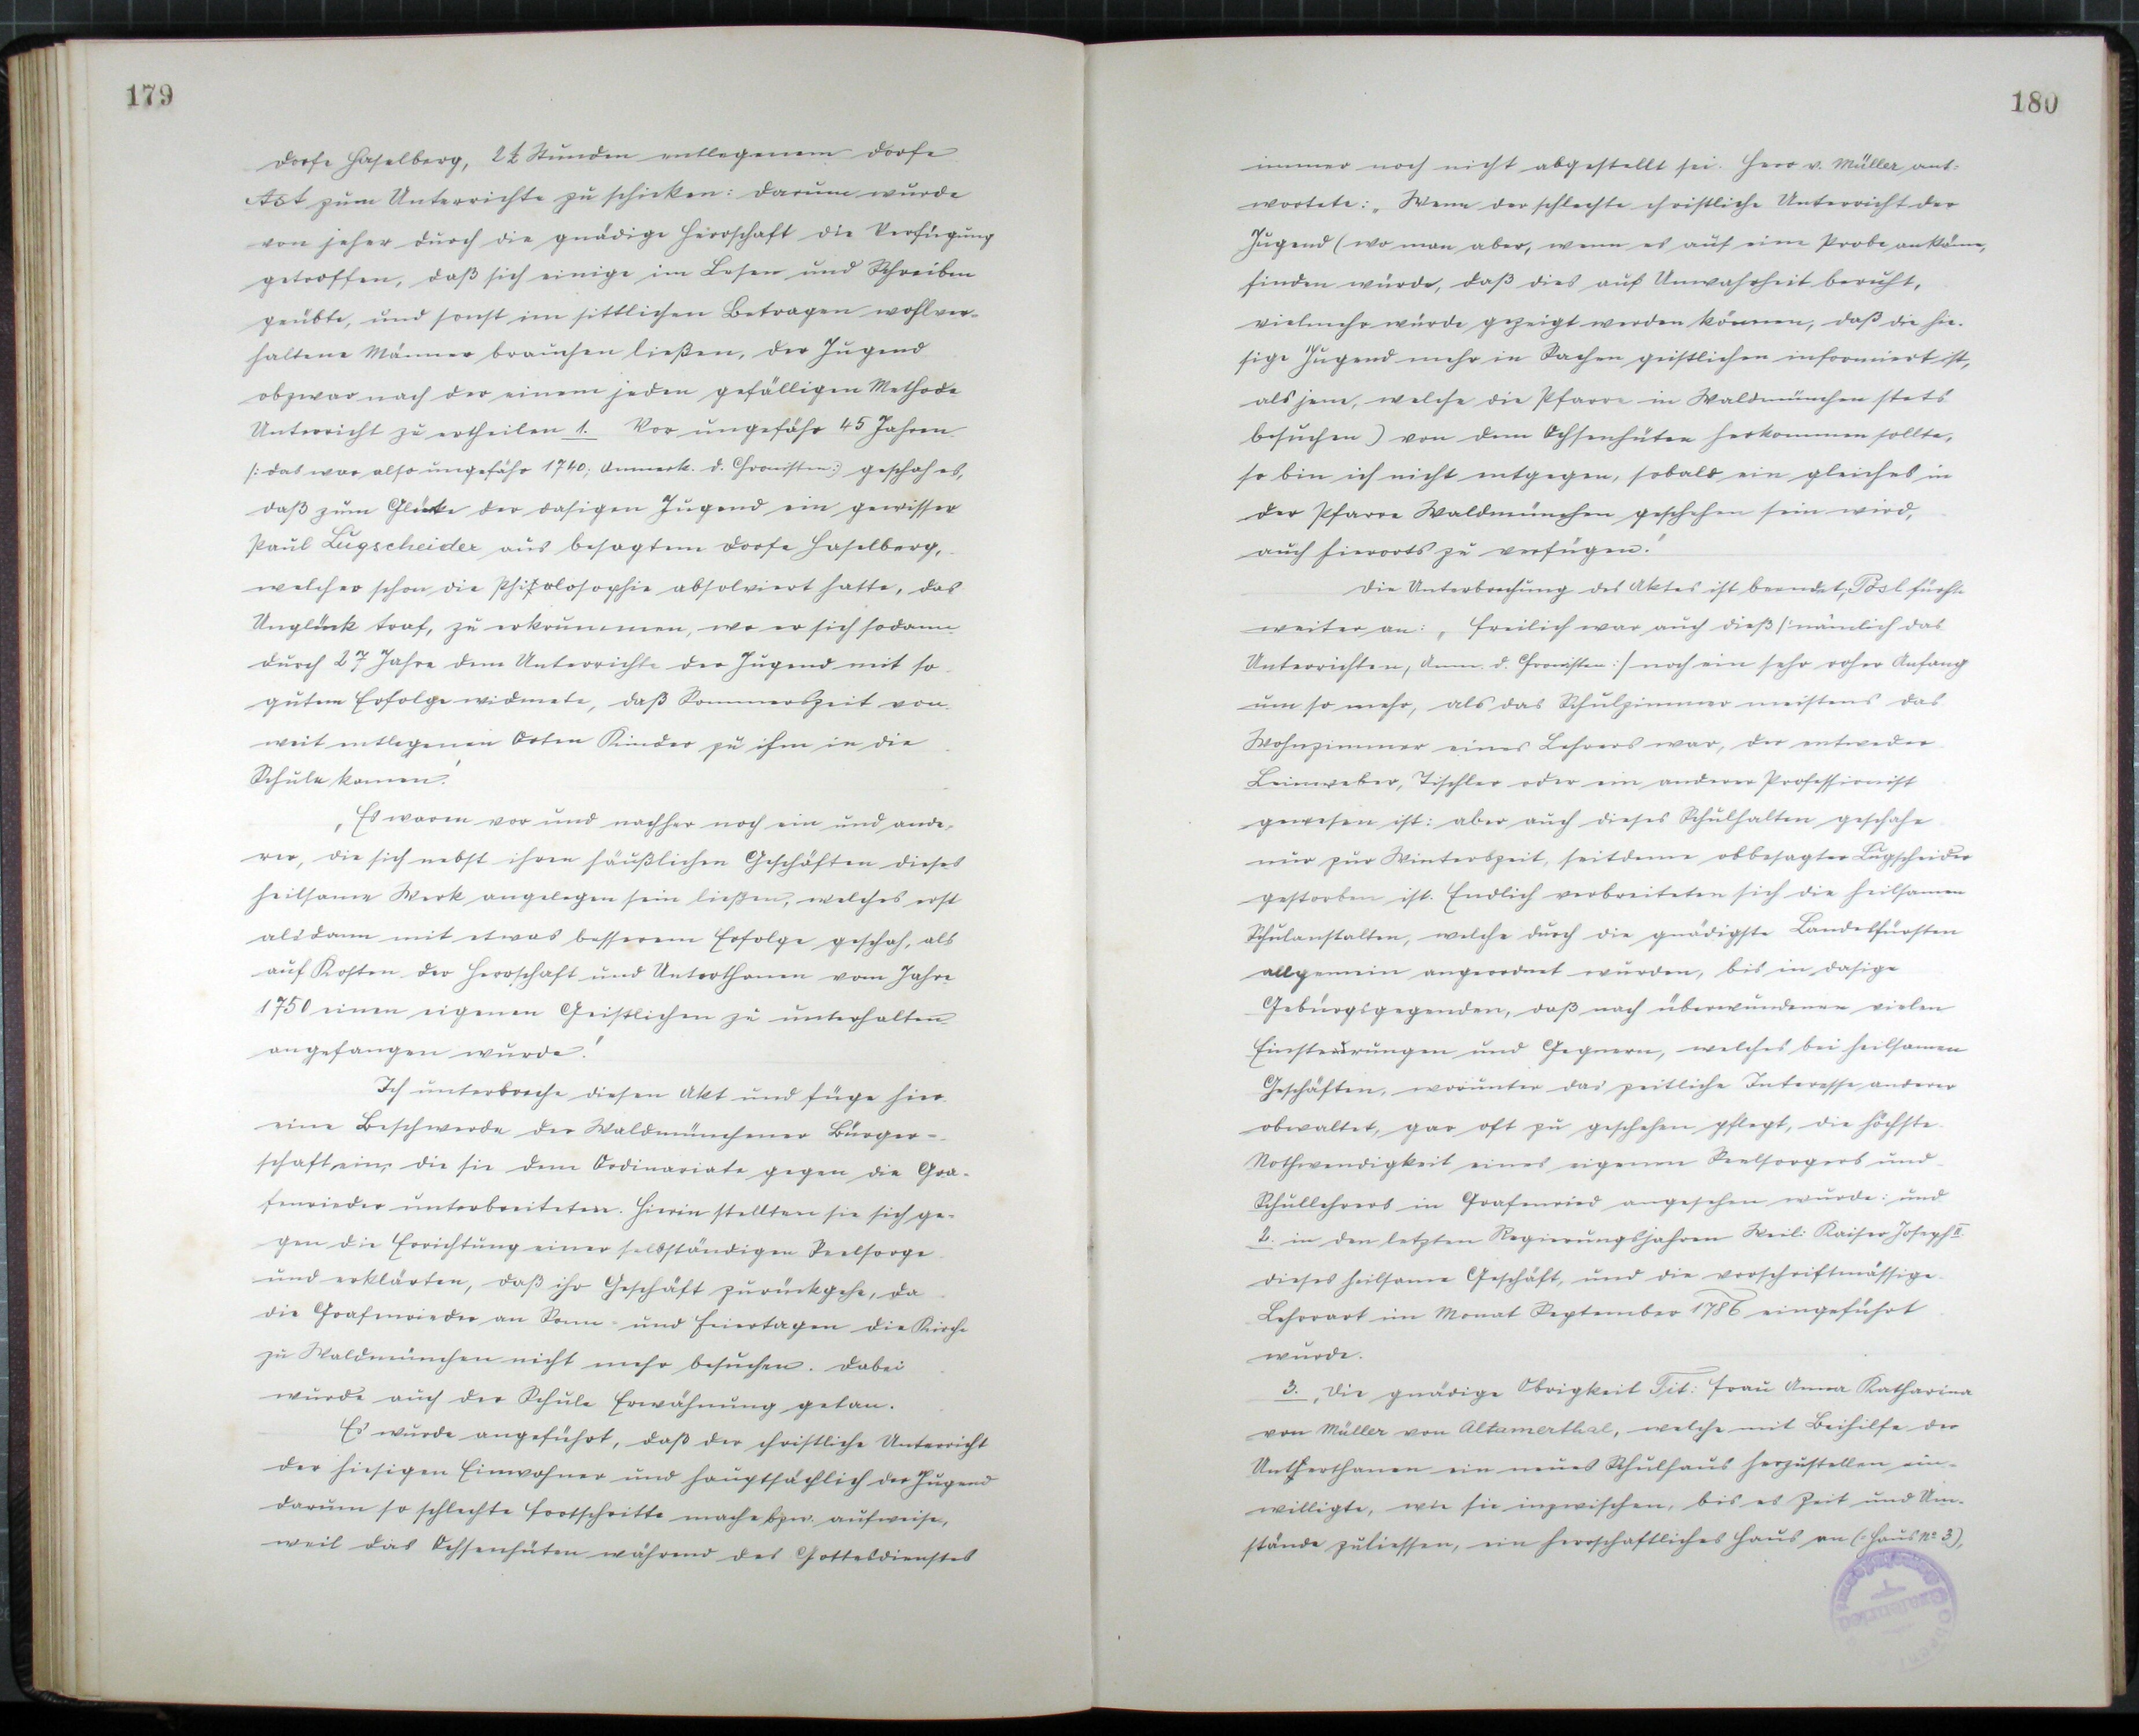 179
Dorfe Haselberg, 2½ Stunden entlegenem Dorfe
Ast zum Unterrichte zu schicken: darum wurde
von jeher durch die gnädige Herrschaft die Verfügung
getroffen, daß sich einige im Lesen und Schreiben
geübte, und sonst im sittlichen Betragen wohlver-
haltene Männer brauchen ließen, der Jugend
obzwar nach der einem jeden gefälligen Methode
Unterricht zu ertheilen 1. Vor ungefähr 45 Jahren
/: das war also ungefähr 1740; Anmerk. d. Chronisten :/ geschah es,
daß zum Glücke der dasigen Jugend ein gewisser
Paul Lugscheider aus besagtem Dorfe Haselberg,
welcher schon die Philosophie absolviert hatte, das
Unglück traf, zu erkrummen, wo er sich sodann
durch 27 Jahre dem Unterrichte der Jugend mit so
gutem Erfolge widmete, daß Sommerszeit von
weit entlegenen Orten Kinder zu ihm in die
Schule kamen.'
„Es waren vor und nachher noch ein und ande-
rer, die sich nebst ihren häußlichen Geschäften dieses
heilsame Werk angelegen sein ließen, welches erst
alsdann mit etwas besserem Erfolge geschah, als
auf Kosten der Herrschaft und Unterthanen vom Jahre
1750 einen eigenen Geistlichen zu unterhalten
angefangen wurde.'
Ich unterbreche diesen Akt und füge hier
eine Beschwerde der Waldmünchener Bürger-
schaft ein, die sie dem Ordinariate gegen die Gra-
fenrieder unterbreiteten. Hierin stellten sie sich ge-
gen die Errichtung einer selbständigen Seelsorge
und erklärten, daß ihr Geschäft zurückgehe, da
die Grafenrieder an Sonn- und Feiertagen die Kirche
zu Waldmünchen nicht mehr besuchen. Dabei
wurde auch der Schule Erwähnung getan.
Es wurde angeführt, daß der christliche Unterricht
der hiesigen Einwohner und hauptsächlich der Jugend
darum so schlechte Fortschritte mache bzw. aufweise,
weil das Ochsenhüten während des Gottesdienstes
180
immer noch nicht abgestellt sei. Herr v. Müller ant-
wortete: „Wenn der schlechte christliche Unterricht der
Jugend (wo man aber, wenn es auf eine Probe ankäme,
finden würde, daß dies auf Unwahrheit beruht,
vielmehr würde gezeigt werden können, daß die hie-
sige Jugend mehr in Sachen geistlichen informiert ist,
als jene, welche die Pfarre in Waldmünchen stets
besuchen) von dem Ochsenhüten herkommen sollte,
so bin ich nicht entgegen, sobald ein gleiches in
der Pfarre Waldmünchen geschehen sein wird,
auch hierorts zu verfügen.'
Die Unterbrechung des Aktes ist beendet; Pösl führte
weiter an: „Freilich war auch dieß /: nämlich das
Unterrichten, Anm. d. Chronisten :/ noch ein sehr roher Anfang
um so mehr, als das Schulzimmer meistens das
Wohnzimmer eines Lehrers war, der entweder
Leinweber, Tischler oder ein anderer Professionist
gewesen ist: aber auch dieses Schulhalten geschahe
nur zur Winterszeit, seitdeme obbesagter Lugscheider
gestorben ist. Endlich verbreiteten sich die heilsamen
Schulanstalten, welche durch die gnädigste Landesfürsten
allgemein angeordnet wurden, bis in dasige
Gebürgsgegenden, daß nach überwundenen vielen
und Gegnern, welches bei heilsamen
Geschäften, worunter das zeitliche Interesse anderer
obwaltet, gar oft zu geschehen pflegt, die höchste
Nothwendigkeit eines eigenen Seelsorgers und
Schullehrers in Grafenried angesehen wurde: und
2. in den letzten Regierungsjahren Weil: Kaiser Joseph II.
dieses heilsame Geschäft, und die vorschriftmässige
Lehrart im Monat September 1786 eingeführt
wurde.
3. „Die gnädige Obrigkeit Tit: Frau Anna Katharina
von Müller von Altamerthal, welche mit Beihilfe der
Unterthanen ein neues Schulhaus herzustellen ein-
willigte, wie sie inzwischen, bis es Zeit und Um-
stände zuliessen, ein herrschaftliches Haus an (= Haus No 3),